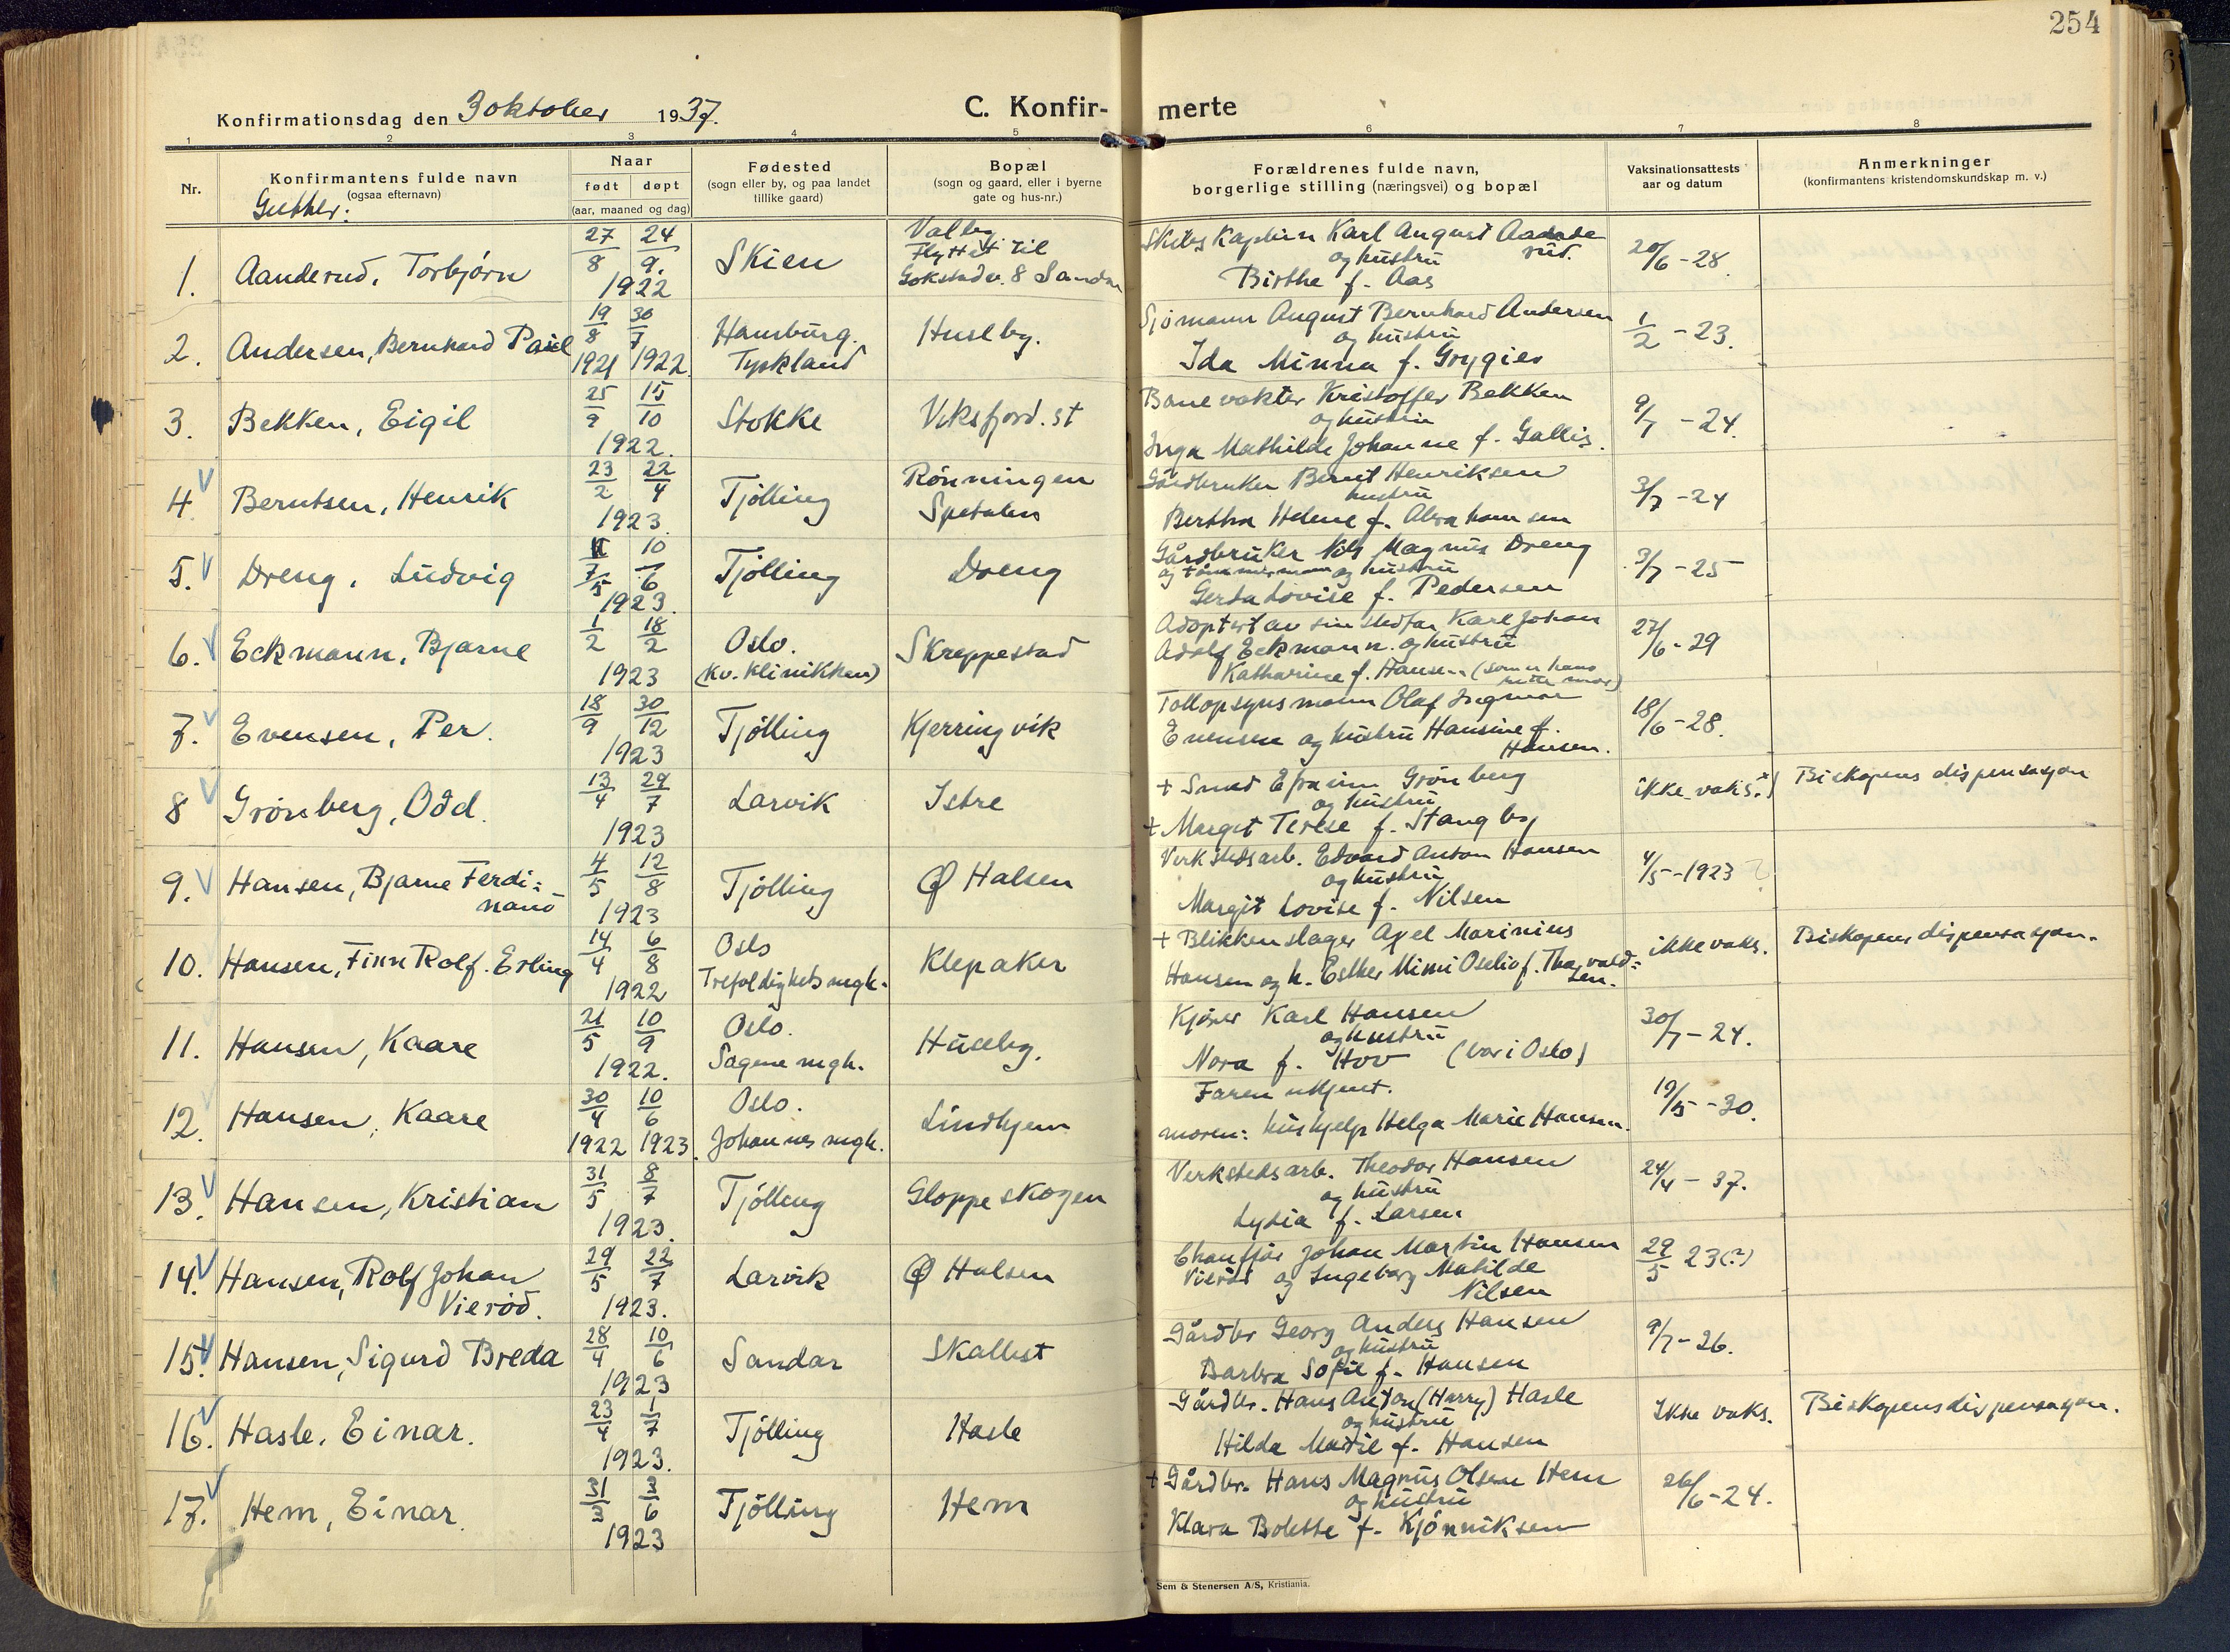 254
Konfirmationsdag den 3 oktober 1937.
C. Konfir- merte
1 2 3 4 5 6 7 8
Nr.
Konfirmantens fulde navn
(ogsaa efternavn)
Gutter:
Naar
født døpt
(aar, maaned og dag)
Fødested
(sogn eller by, og paa landet
tillike gaard)
Bopæl
(sogn og gaard, eller i byerne
gate og hus-nr.)
Forældrenes fulde navn,
borgerlige stilling (næringsvei) og bopæl
Vaksinationsattests
aar og datum
Anmerkninger
(konfirmantens kristendomskundskap m. v.)
1. Aanderud, Torbjørn
27/8 24/9.
1922
Skien
Valby
Flyttet til
Gokstadv. 8
Skibskaptein Karl August
og hustru
Birthe f. Aas
20/6 - 28.
2. Andersen, Bernhard Paul
19/8 30/7
1921 1922.
Hamburg.
Tyskland
Huseby.
Sjömann August Bernhard Andersen
og hustru
Ida Minna f.
1/2 - 23.
3. Bekken, Eigil
25/9 15/10
1922.
Stokke
Viksfjord. st
Banevokter Kristoffer Bekken
og hustru
Inga Mathilde Johanne f. Gallis.
9/7 - 24.
4. Berntsen, Henrik
23/2 22/4
1923.
Tjølling
Rönningen
Spetalen
Gårdbruker Bernt Henriksen
hustru
Bertha Helene f. Abrahamsen
3/7 - 24
5. Dreng, Ludvig
7/5 10/6
1923.
Tjölling
Dreng
Gårdbruker Nils Magnus Dreng
og tömmermann og hustru
Gerda Lovise f. Pedersen
3/7 - 25
6. Eckmann, Bjarne
1/2 18/2
1923
Oslo.
(Kv. klinikken)
Skreppestad
Adoptert av sin stedfar Karl Johan
Adolf Eckmann. og hustru
Katharine f. Hansen. (som er hans
rette mor)
27/6 - 29
7. Evensen, Per.
18/9 30/12
1923
Tjölling
Kjerringvik
Tollopsynsmann Olaf Ingmar
Evensen og hustru Hansine f.
Hansen.
18/6 - 28.
8 Grönberg, Odd.
13/4 29/7
1923
Larvik
Istre
+ Smed Efraim Grönberg
og hustru
+ Margit Terese f. Stangby
ikke vaks.
Biskopens dispensasjon
9. Hansen, Bjarne Ferdi=
nand
4/5 12/8
1923
Tjölling
Ø Halsen
Verkstedsarb. Edvard Anton Hansen
og hustru
Margit Lovise f. Nilsen
4/5 - 1923 ?
10. Hansen, Finn Rolf. Erling
14/4 6/8
1922
Oslo
Trefoldighets mgh.
Klepaker
+ Blikkenslager Axel Marinius
Hansen og h. Esther Mimi Oselio f. Thorvald=
sen.
ikke vaks.
Biskopens dispensasjon.
11. Hansen, Kaare
21/5 10/9
1922.
Oslo.
Sagene mgh.
Huseby.
Kjører Karl Hansen
og hustru
Nora f. Hov (bor i Oslo)
30/7 - 24.
12. Hansen, Kaare
30/4 10/6
1922 1923.
Oslo.
Johannes mgh.
Lindhjem
Faren ukjent.
moren: hushjelp Helga Marie Hansen.
19/5 - 30.
13. Hansen, Kristian
31/5 8/7
1923.
Tjölling
Gloppeskogen
Verkstedsarb. Theodor Hansen
og hustru
Lydia f. Larsen
24/4 - 37.
14. Hansen, Rolf Johan
Vieröd.
29/5 22/7
1923.
Larvik
Ø Halsen
Chauffør Johan Martin Hansen
Vieröd og Ingeborg Matilde
Nilsen
29/5 23(?)
15. Hansen, Sigurd Breda
28/4 10/6
1923
Sandar
Skallist
Gårdbr Georg Anders Hansen
og hustru
Barbra Sofie f. Hansen
9/7 - 26.
16. Hasle, Einar.
23/4 1/7
1923.
Tjölling
Hasle
Gårdbr. Hans Anton (Harry) Hasle
og hustru
Hilda Matil f. Hansen
Ikke vaks.
Biskopens dispensasjon.
17. Hem, Einar.
31/3 3/6
1923
Tjölling
Hem
+ Gårdbr. Hans Magnus Olsen Hem
og hustru
Klara Bolette f. Kjönniksen
26/6 - 24.
Sem & Stenersen A/S, Kristiania.